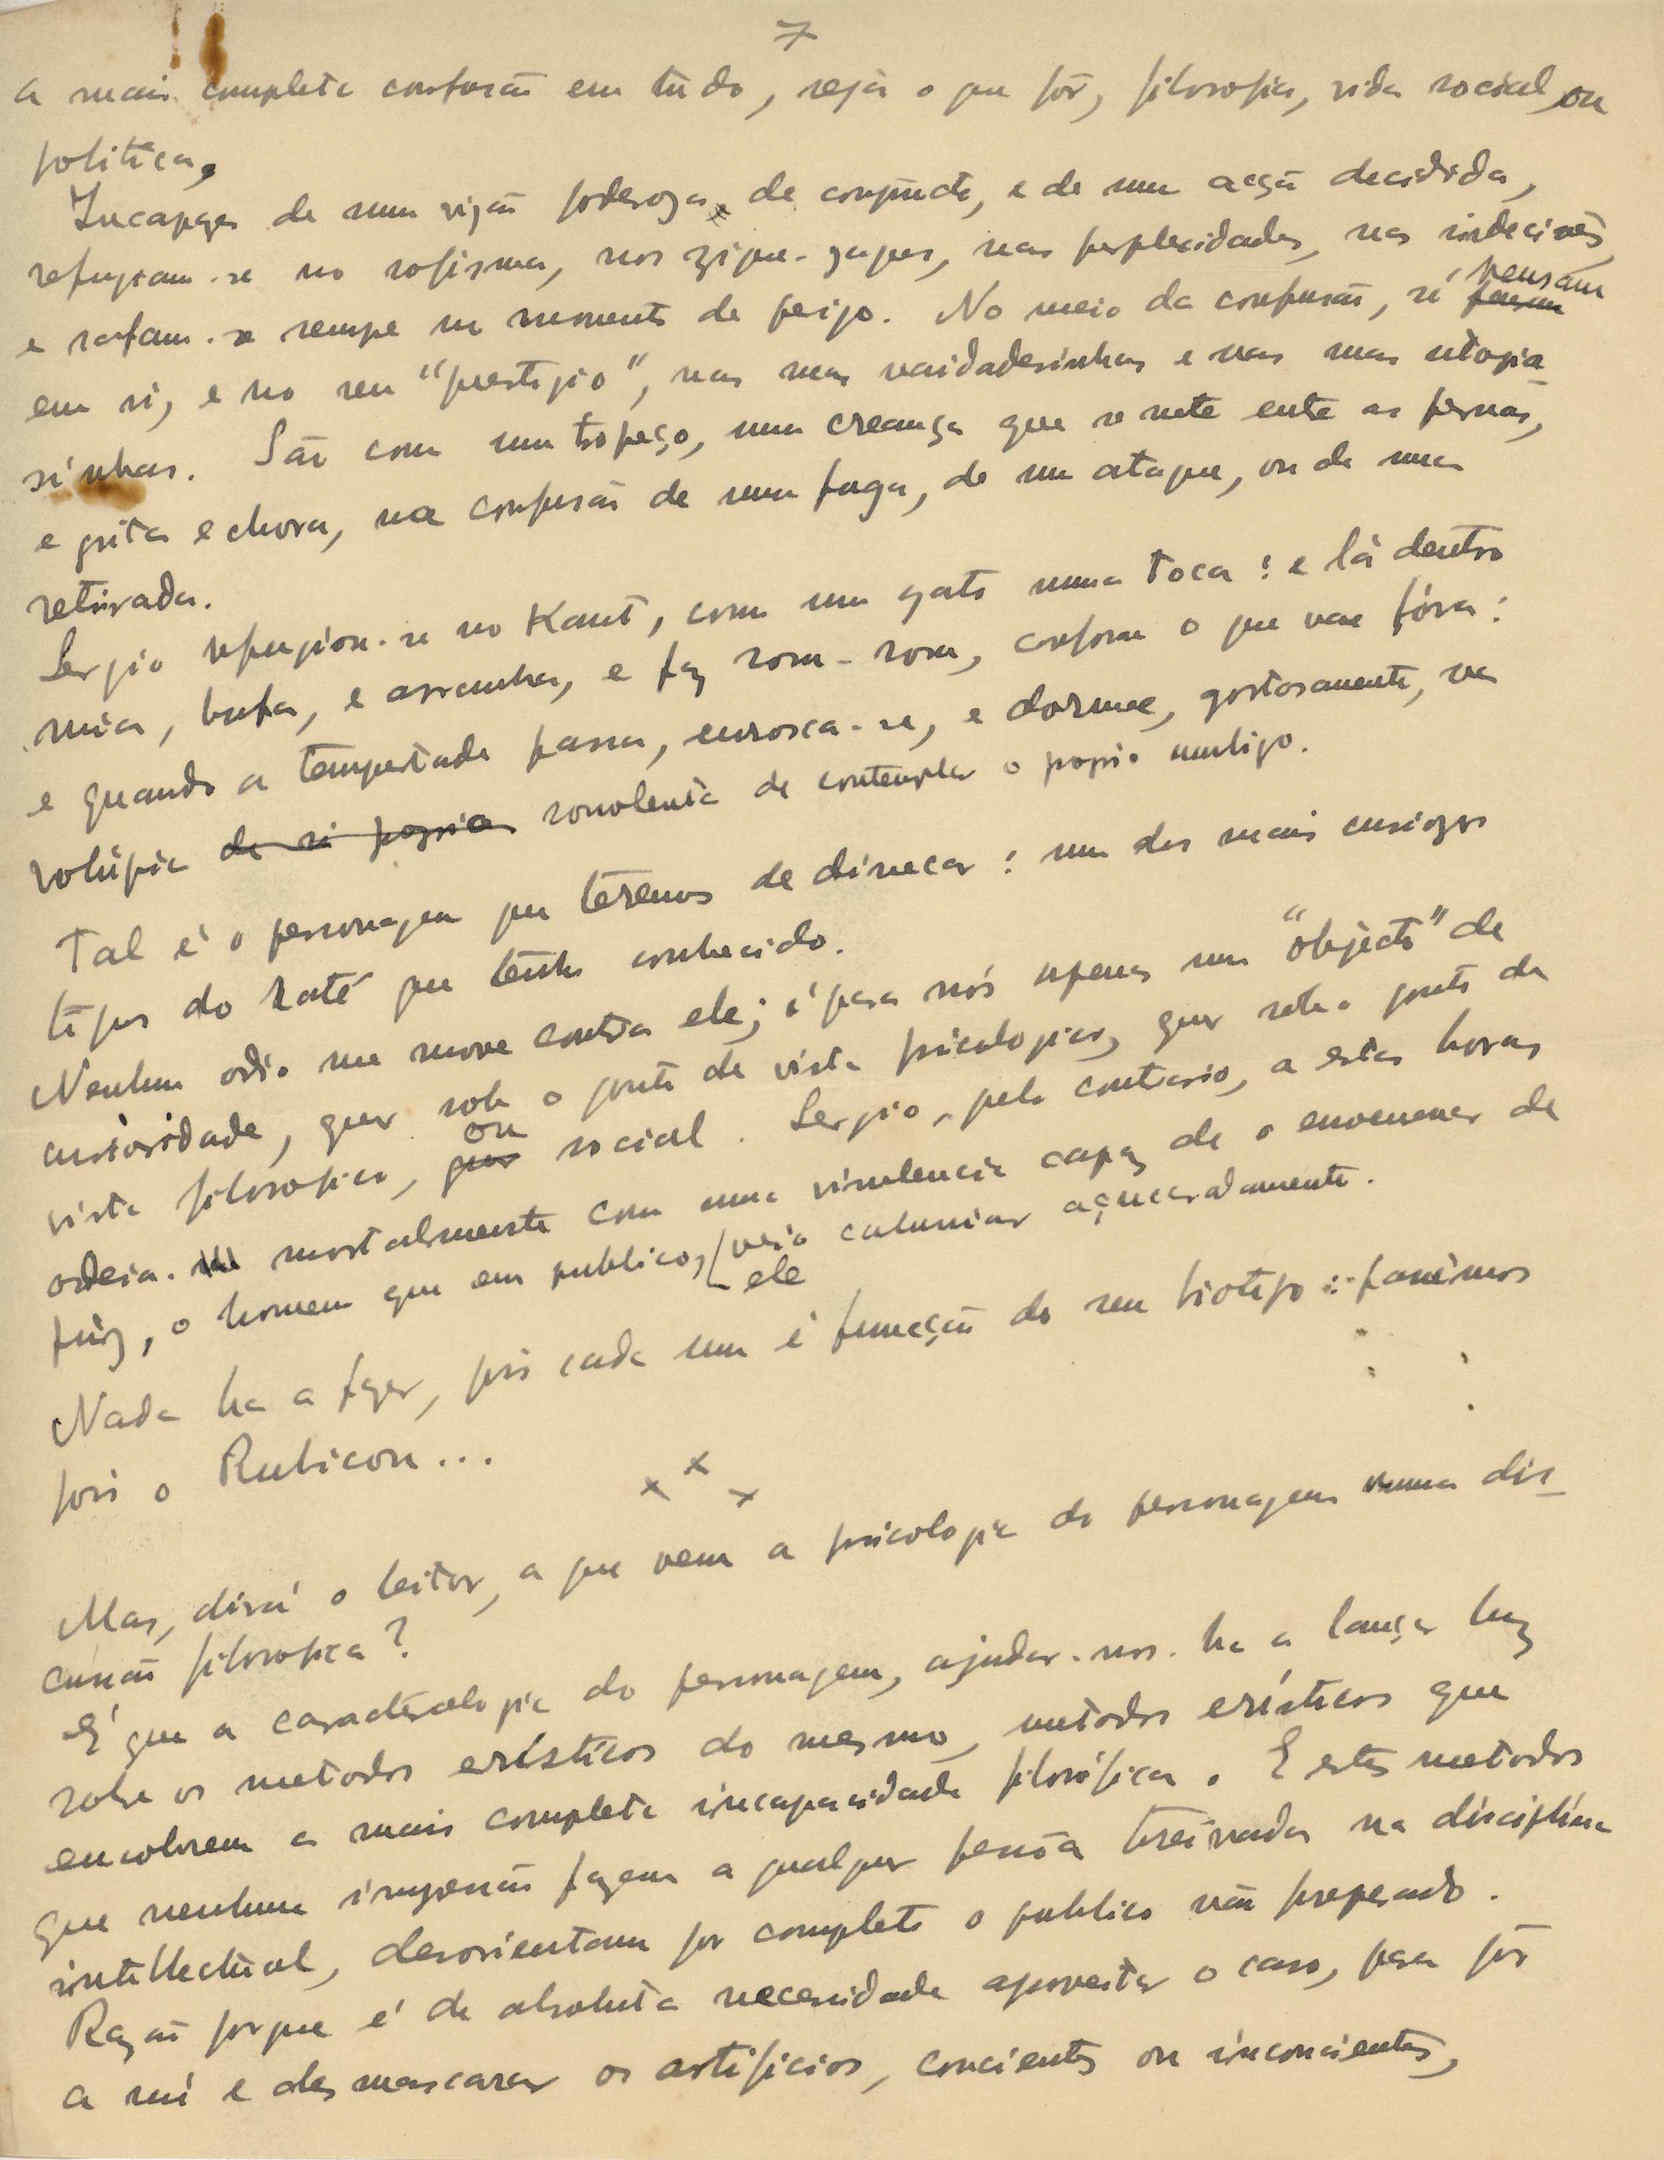 7
a mais completa confusão em tudo, seja o que fôr, filosofia, vida social, ou
politica.
Incapazes de uma vizão poderoza, de conjuncto, e de uma acção decidida,
refugiam-se no sofisma, nos zigue-zagues, nas perplexidades, nas indecisões,
e safam-se sempre no momento de perigo. No meio da confusão, só pensam
em si, e no seu "prestigio", nas suas vaidadesinhas e nas suas utopia-
sinhas. São como um tropeço, uma creança que se mete entre as pernas,
e grita e chora, na confusão de uma fuga, de um ataque, ou de uma
retirada.
Sergio refugiou-se no Kant, como um gato numa toca: e lá dentro
mia, bufa, e arranha, e faz rom-rom, conforme o que vae fóra:
e quando a tempestade passa, enrosca-se, e dorme, gostosamente, na
volúpia de si propria sonolenta de contemplar o proprio umbigo.
Tal é o personagem que teremos de dissecar: um dos mais curiozos
tipos do raté que tenho conhecido.
Nenhum odio me move contra ele; é para nós apenas um "objecto" de
curiosidade, quer sob o ponto de vista psicologico, quer sob o ponto de
vista filosofico, quer ou social. Sergio, pelo contrario, a estas horas
odeia-me mortalmente com uma virulencia capaz de o envenenar de
vez, o homem que em publico, ele veio caluniar açucaradamente.
Nada ha a fazer, pois cada um é funcção do seu biotipo: passémos
pois o Rubicon...
x x x
Mas, dirá o leitor, a que vem a psicologia do personagem numa dis-
cussão filosofica?
É que a caracterologia do personagem, ajudar-nos-ha a lançar luz
sobre os metodos erísticos do mesmo, metodos erísticos que
encobrem a mais completa incapacidade filosófica. E estes metodos
que nenhuma impressão fazem a qualquer pessôa treinada na disciplina
intellectual, desorientam por completo o publico não preparado.
Razão porque é de absoluta necessidade aproveitar o caso, para pôr
a nú e desmascarar os artificios, concientes ou inconcientes,